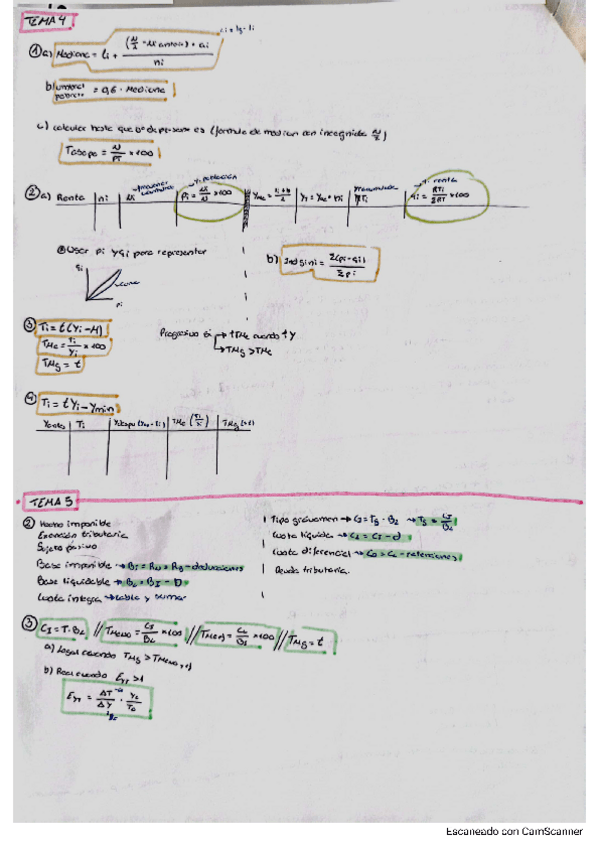 TEMA 4
ai = ls - li
① a) Mediana = li + ((N/2 - Ni anterior) · ai) / ni
b) umbral pobreza = 0,6 · Mediana
c) calcular hasta que nº de personas es (fórmula de median con incognita N/2)
Tasapo = N/PT × 100
② a) Renta | ni | frecuencia Ni | % población pi = Ni/N × 100 | Yme = | Yi = Yme · ni | RTi | % renta qi = RTi/ΣRT × 100
Usar pi y qi para representar
qi
pi
b) Ind gini = Σ(pi - qi) / Σpi
③ Ti = t(Yi - M)
TMe = Ti/Yi × 100
TMg = t
Progresivo si → ↑TMe cuando ↑Y
→ TMg > TMe
④ Ti = tYi - Ymin
Yanto | Ti | | TMe (Ti/Yi) | TMg (=t)
TEMA 5
② Hecho imponible
Exención tributaria
Sujeto pasivo
Base imponible → BI = RN = RB - deducciones
Base liquidable → BL = BI - D
Cuota íntegra → tabla y sumar
Tipo gravamen → CI = Tg · BL → Tg = CI/BL
Cuota líquida → CL = CI - d
Cuota diferencial → CD = CL - retenciones
Deuda tributaria.
③ CI = T · BL // TMeno = CI/BL × 100 // TMeef = CL/BI × 100 // TMg = t
a) Legal cuando TMg > TMeno
b) Real cuando EYT > 1
EYT = ΔT/ΔY · Y0/T0
Escaneado con CamScanner